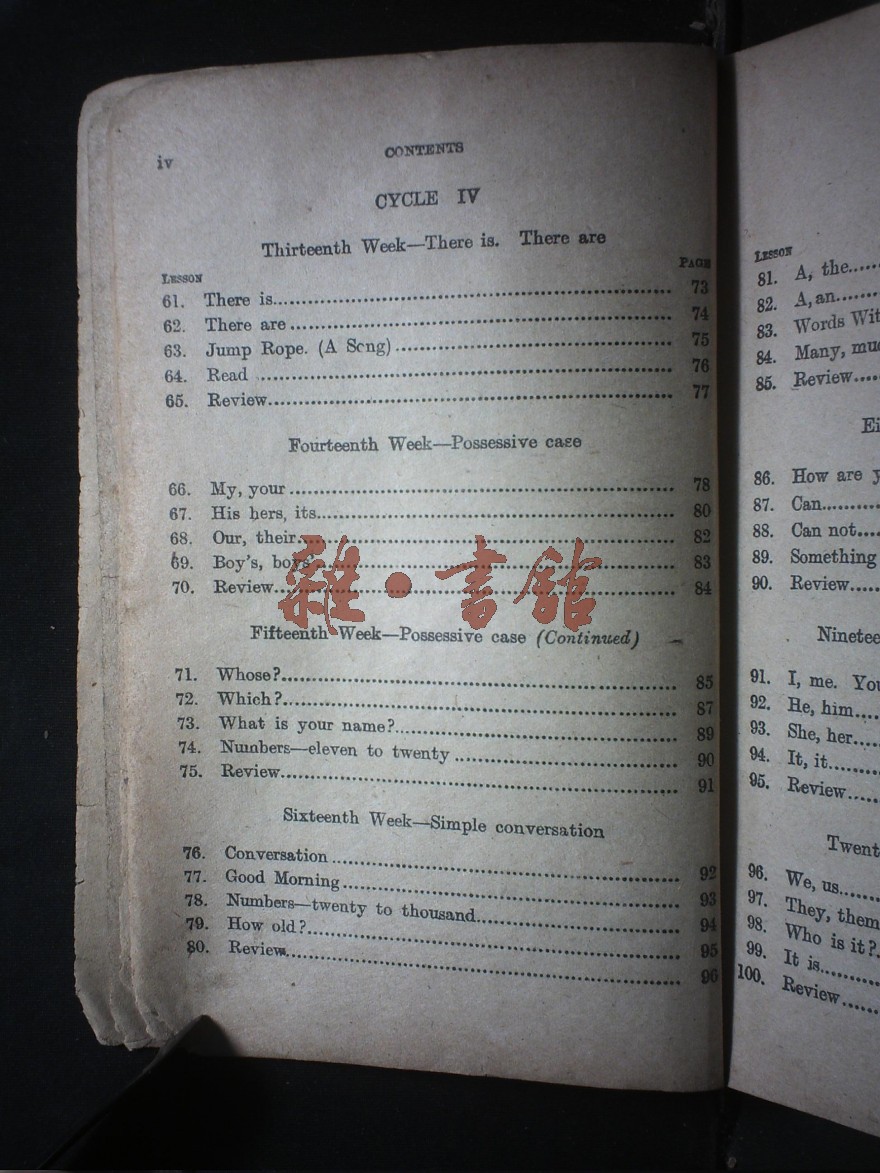 iv
CONTENTS
CYCLE IV
Thirteenth Week—There is. There are
LESSON PAGE
61. There is.................... 73
62. There are.................... 74
63. Jump Rope. (A Song).................... 75
64. Read .................... 76
65. Review.................... 77
Fourteenth Week—Possessive case
66. My, your.................... 78
67. His hers, its.................... 80
68. Our, their.................... 82
69. Boy's, boys'.................... 83
70. Review.................... 84
雜·書舘
Fifteenth Week—Possessive case (Continued)
71. Whose?.................... 85
72. Which?.................... 87
73. What is your name?.................... 89
74. Numbers—eleven to twenty .................... 90
75. Review.................... 91
Sixteenth Week—Simple conversation
76. Conversation.................... 92
77. Good Morning.................... 93
78. Numbers—twenty to thousand.................... 94
79. How old?.................... 95
80. Review.................... 96
LESSON
81. A, the......
82. A, an......
83. Words
84. Many,
85. Review....
86. How are
87. Can..........
88. Can not....
89. Something
90. Review......
91. I, me.
92. He, him....
93. She, her....
94. It, it........
95. Review.....
96. We, us......
97. They, them
98. Who is it?.
99. It is.........
100. Review.....